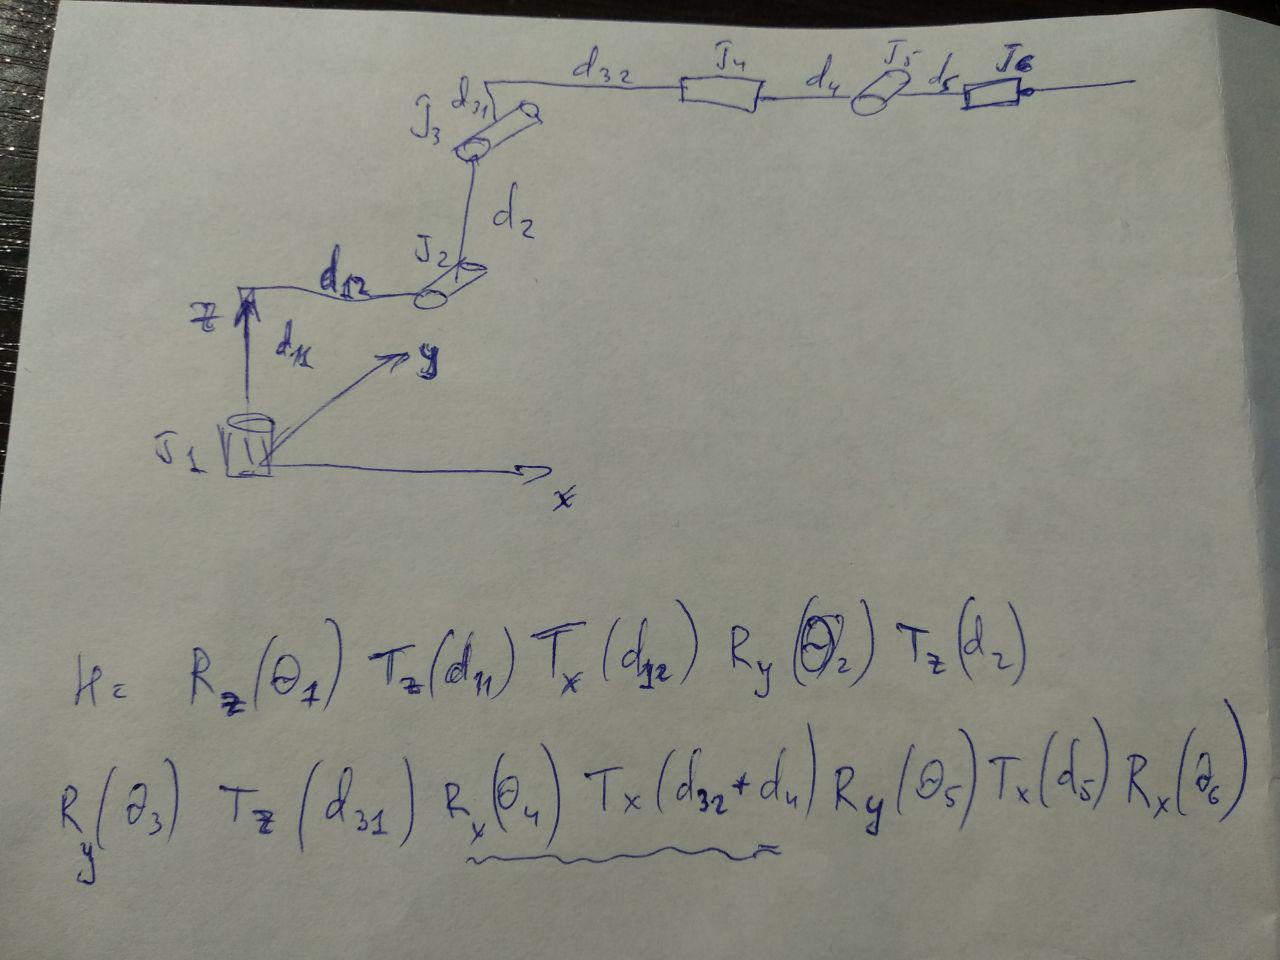 d₃₂ J₄ d₄ J₅ d₅ J₆
J₃ d₃₁
d₂
J₂
d₁₂
z
d₁₁ y
J₁
x
H = R_z(θ₁) T_z(d₁₁) T_x(d₁₂) R_y(θ₂) T_z(d₂)
R_y(θ₃) T_z(d₃₁) R_x(θ₄) T_x(d₃₂+d₄) R_y(θ₅) T_x(d₅) R_x(θ₆)